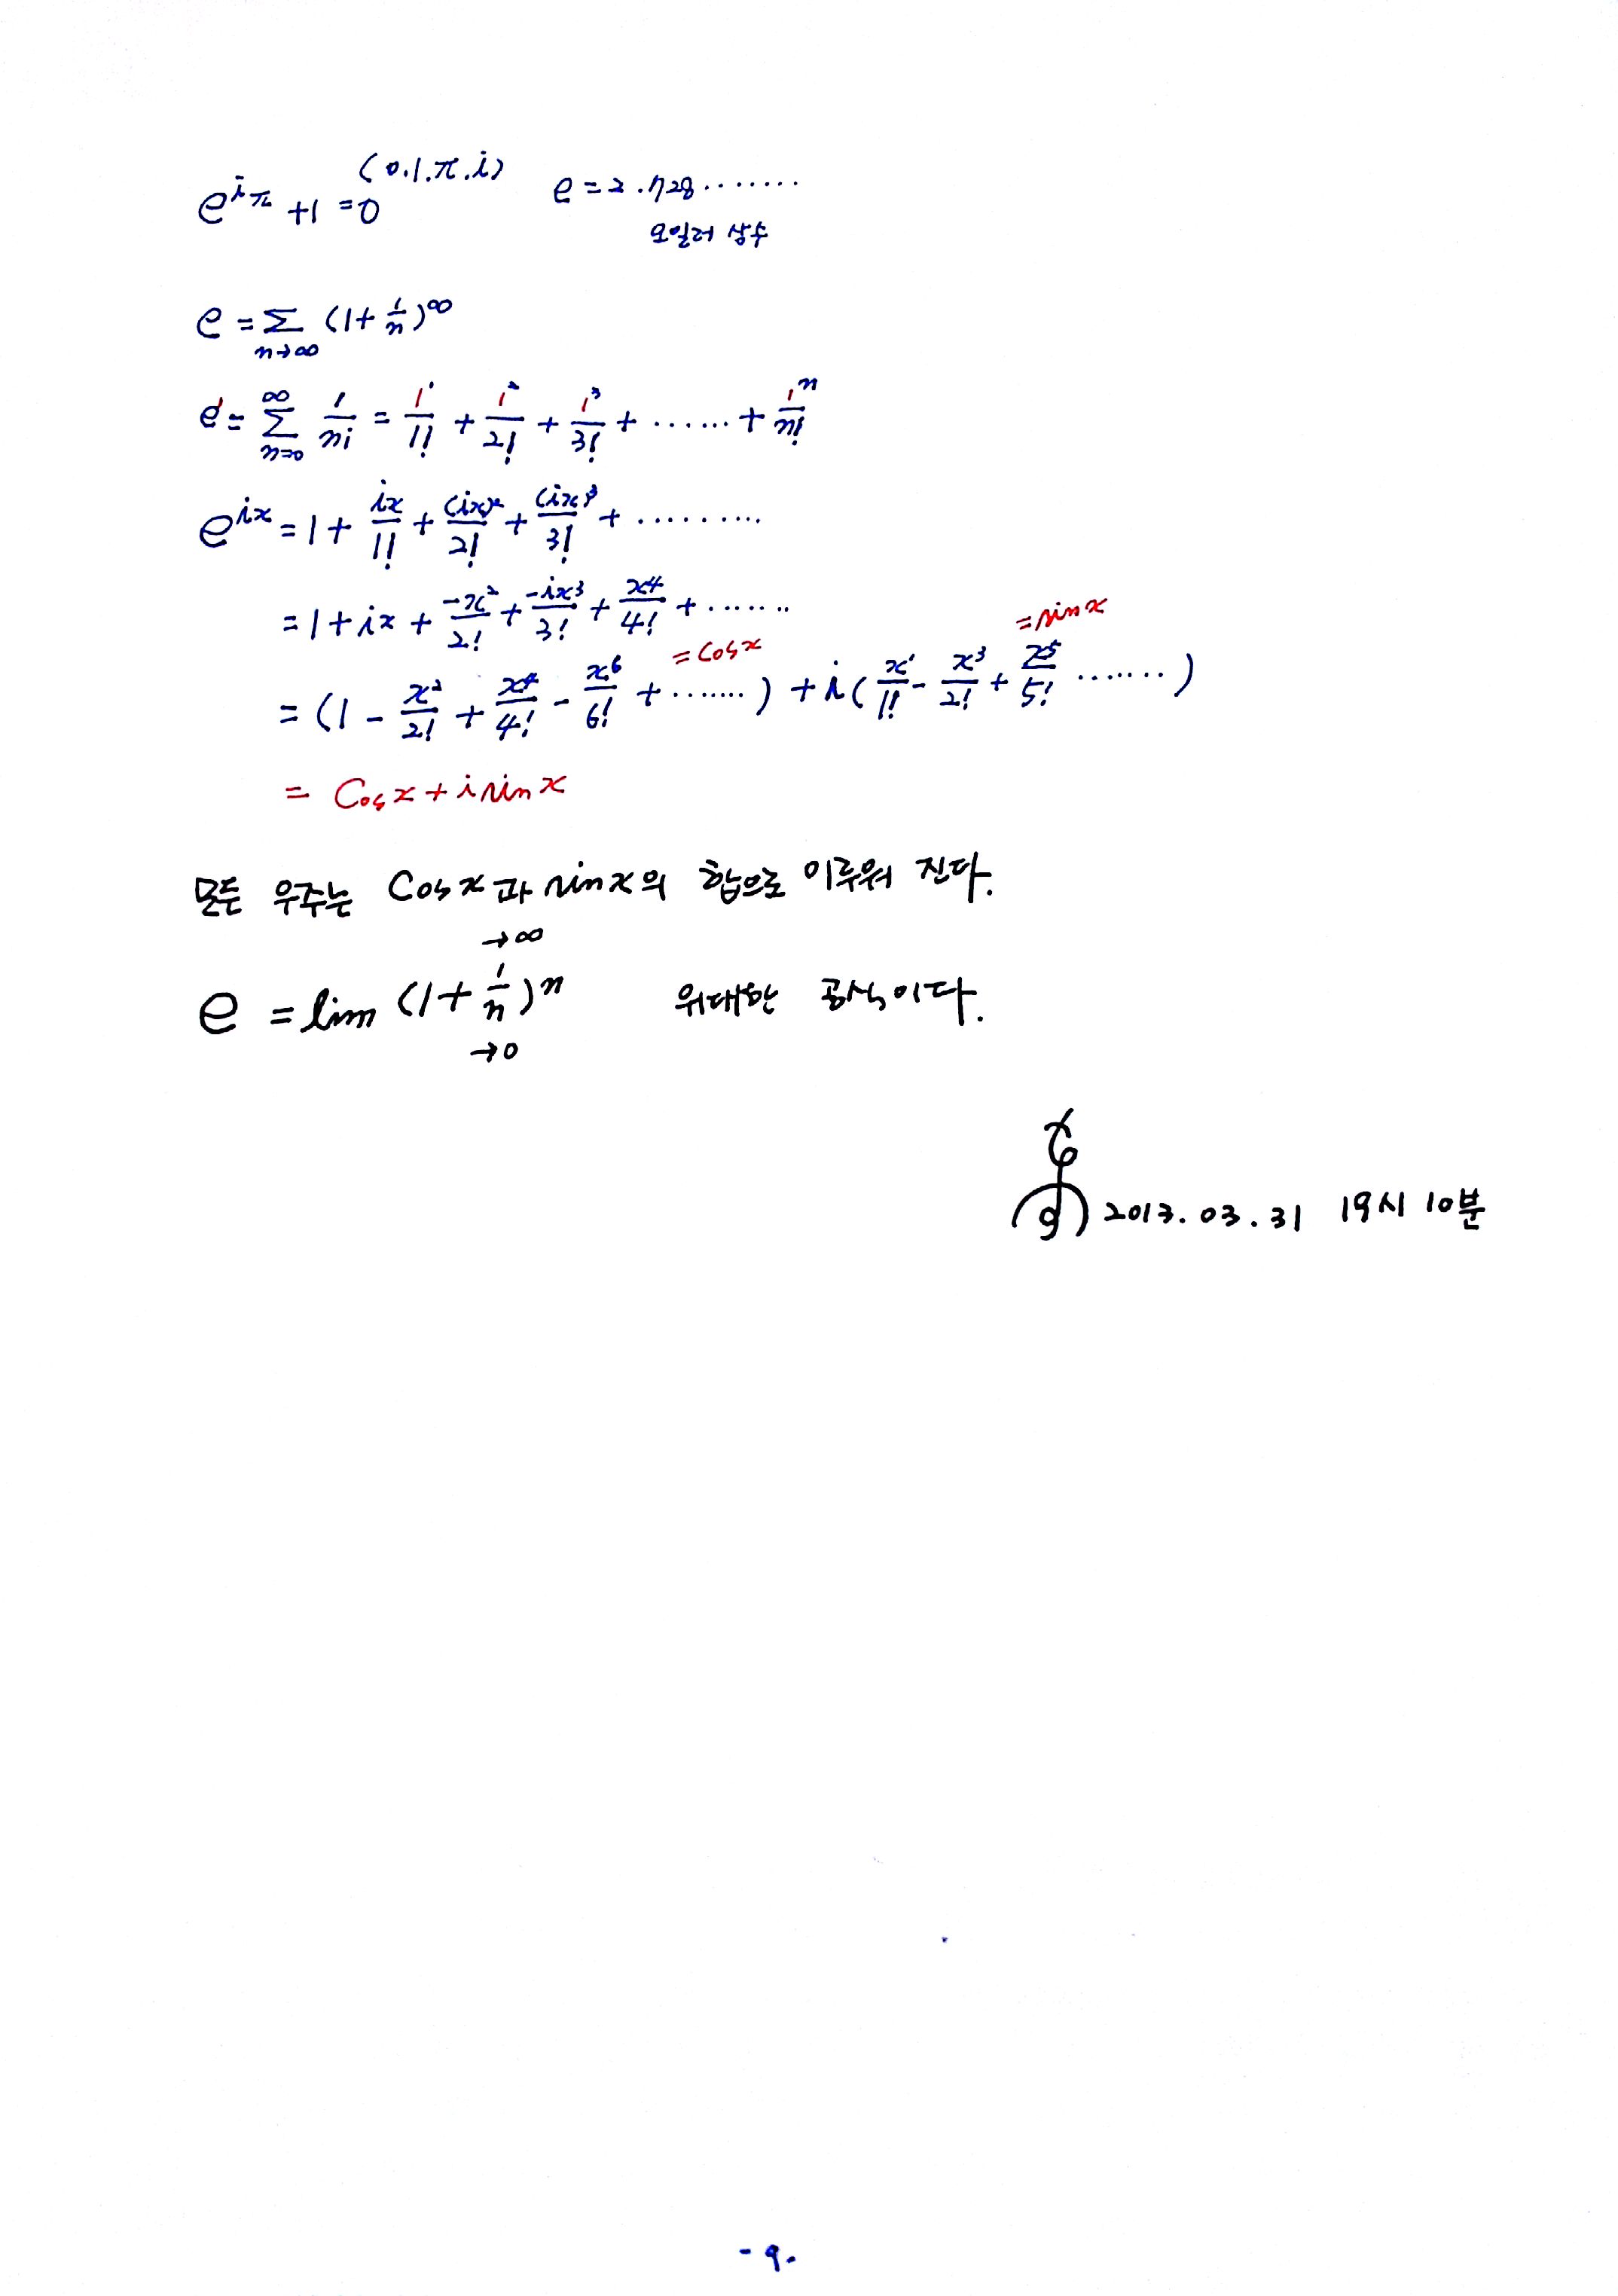 e^{iπ} + 1 = 0 (0.1.π.i) e = 2.728.......
오일러 상수
e = Σ_{n→∞} (1 + 1/n)^∞
e¹ = Σ_{n=0}^{∞} 1/ni = 1¹/1! + 1²/2! + 1³/3! + ...... + 1ⁿ/n!
e^{ix} = 1 + ix/1! + (ix)²/2! + (ix)³/3! + .........
= 1 + ix + -x²/2! + -ix³/3! + x⁴/4! + .......
= cosx = sinx
= (1 - x²/2! + x⁴/4! - x⁶/6! + .......) + i(x¹/1! - x³/2! + x⁵/5! .......)
= Cosx + i sinx
모든 우주는 Cosx과 sinx의 합으로 이루워 진다.
→∞
e = lim (1 + 1/n)ⁿ 위대한 공식이다.
→0
2013.03.31 19시 10분
- 9.